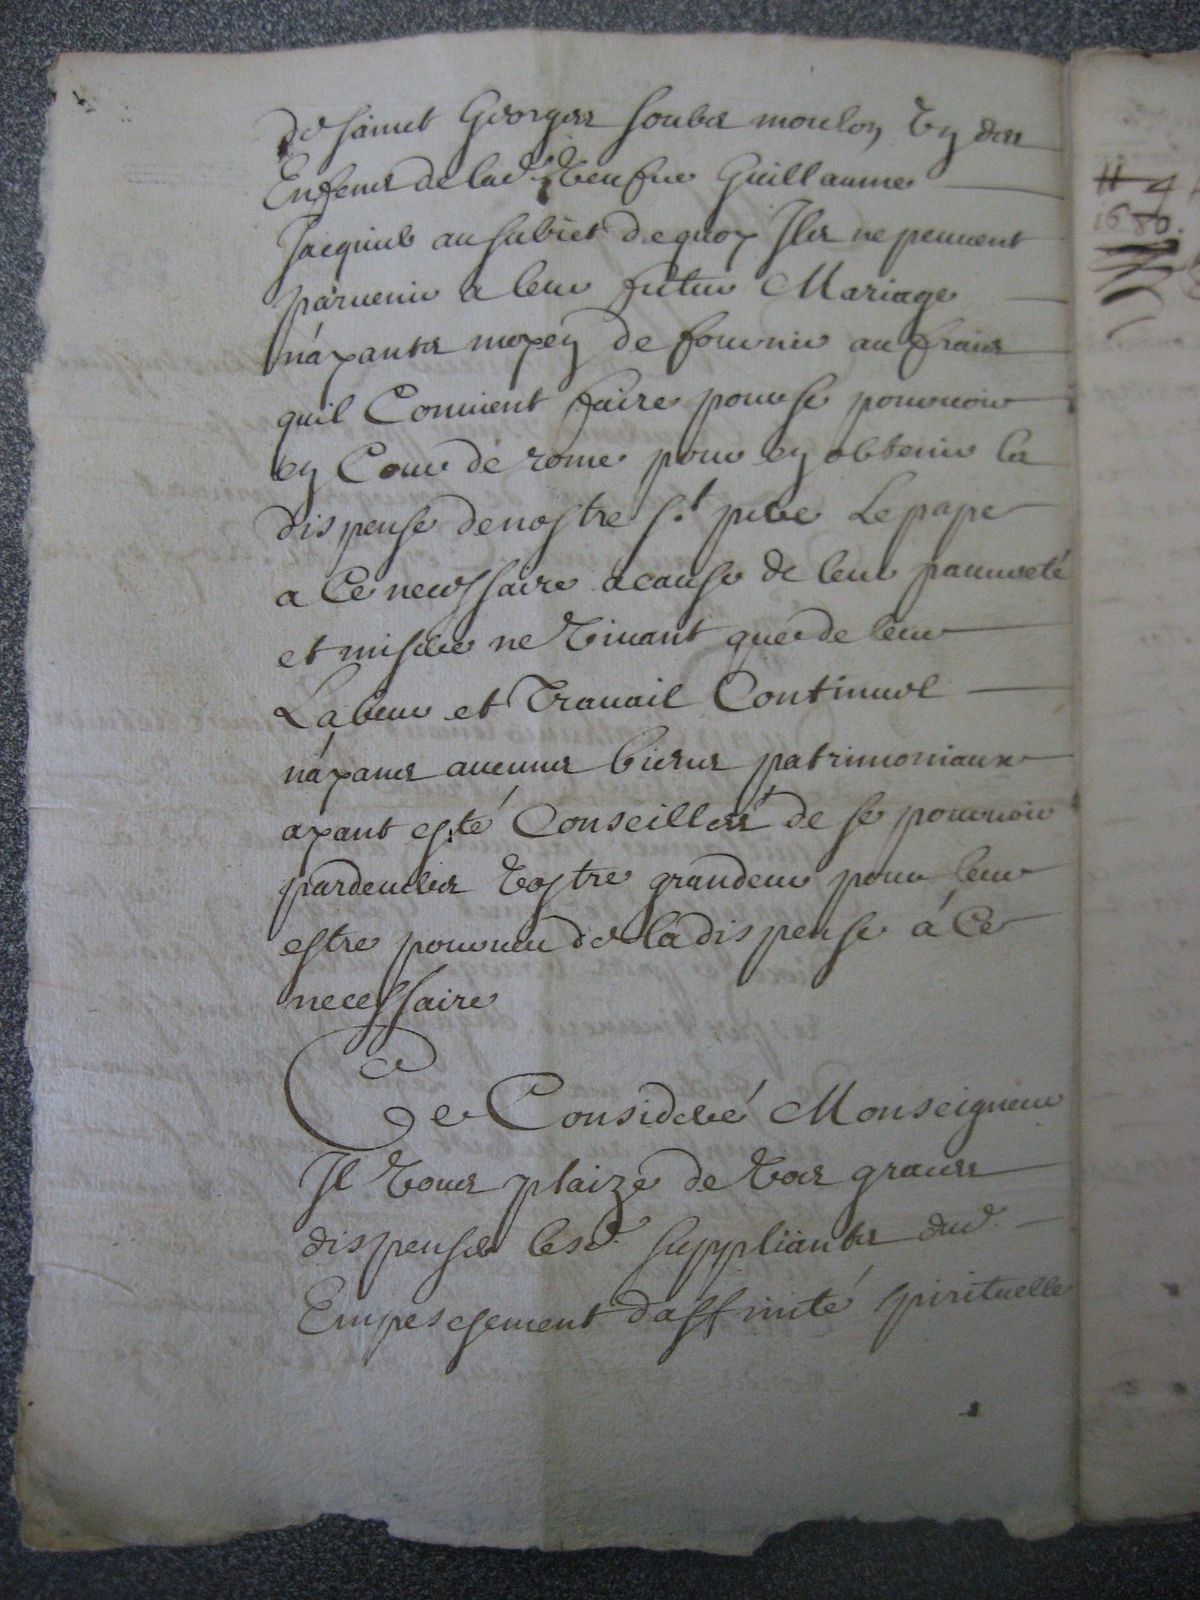 de sainct Georges soubs moulon Un des
Enfens de lad. Veufve Guillaume
Jacquinb au subiet de quoy Ils ne peuuent
paruenir a leur futur Mariage
n'ayants moyen de fournir au frais
quil Conuient faire pour se pouruoir
en Cour de rome pour en obtenir la
dispense de nostre s.t pere Le pape
a Ce necessaire a cause de leur pauureté
et misere ne Viuant que de leur
Labeur et Trauail Continuel
n'ayans aucuns biens patrimoniaux
ayant esté Conseillés de se pouruoir
pardeuers Vostre grandeur pour leur
estre pourueu de la dispense á Ce
necessaire
Ce Consideré Monseigneur
Il Vous plaize de Vos graces
dispenser lesd. suppliants dud.
Empeschement daffinité spirituelle
1680.